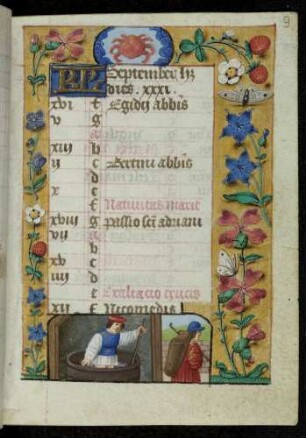 9
KL September hȝ
dies. xxxi.
xvi f Egidij abbis
v g
xiii b
ii c Bertini abbis
d
x e
f Natiuitas marie
xviii g passio sci adriani
vii
b
xv c
iiii d
e Exaltacio crucis
xii f Nicomedis